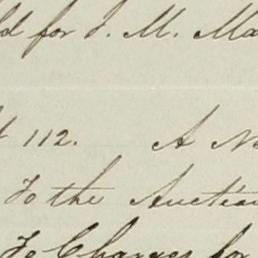 for J. M. Ma
112. A N
To the Auction
To Charges for